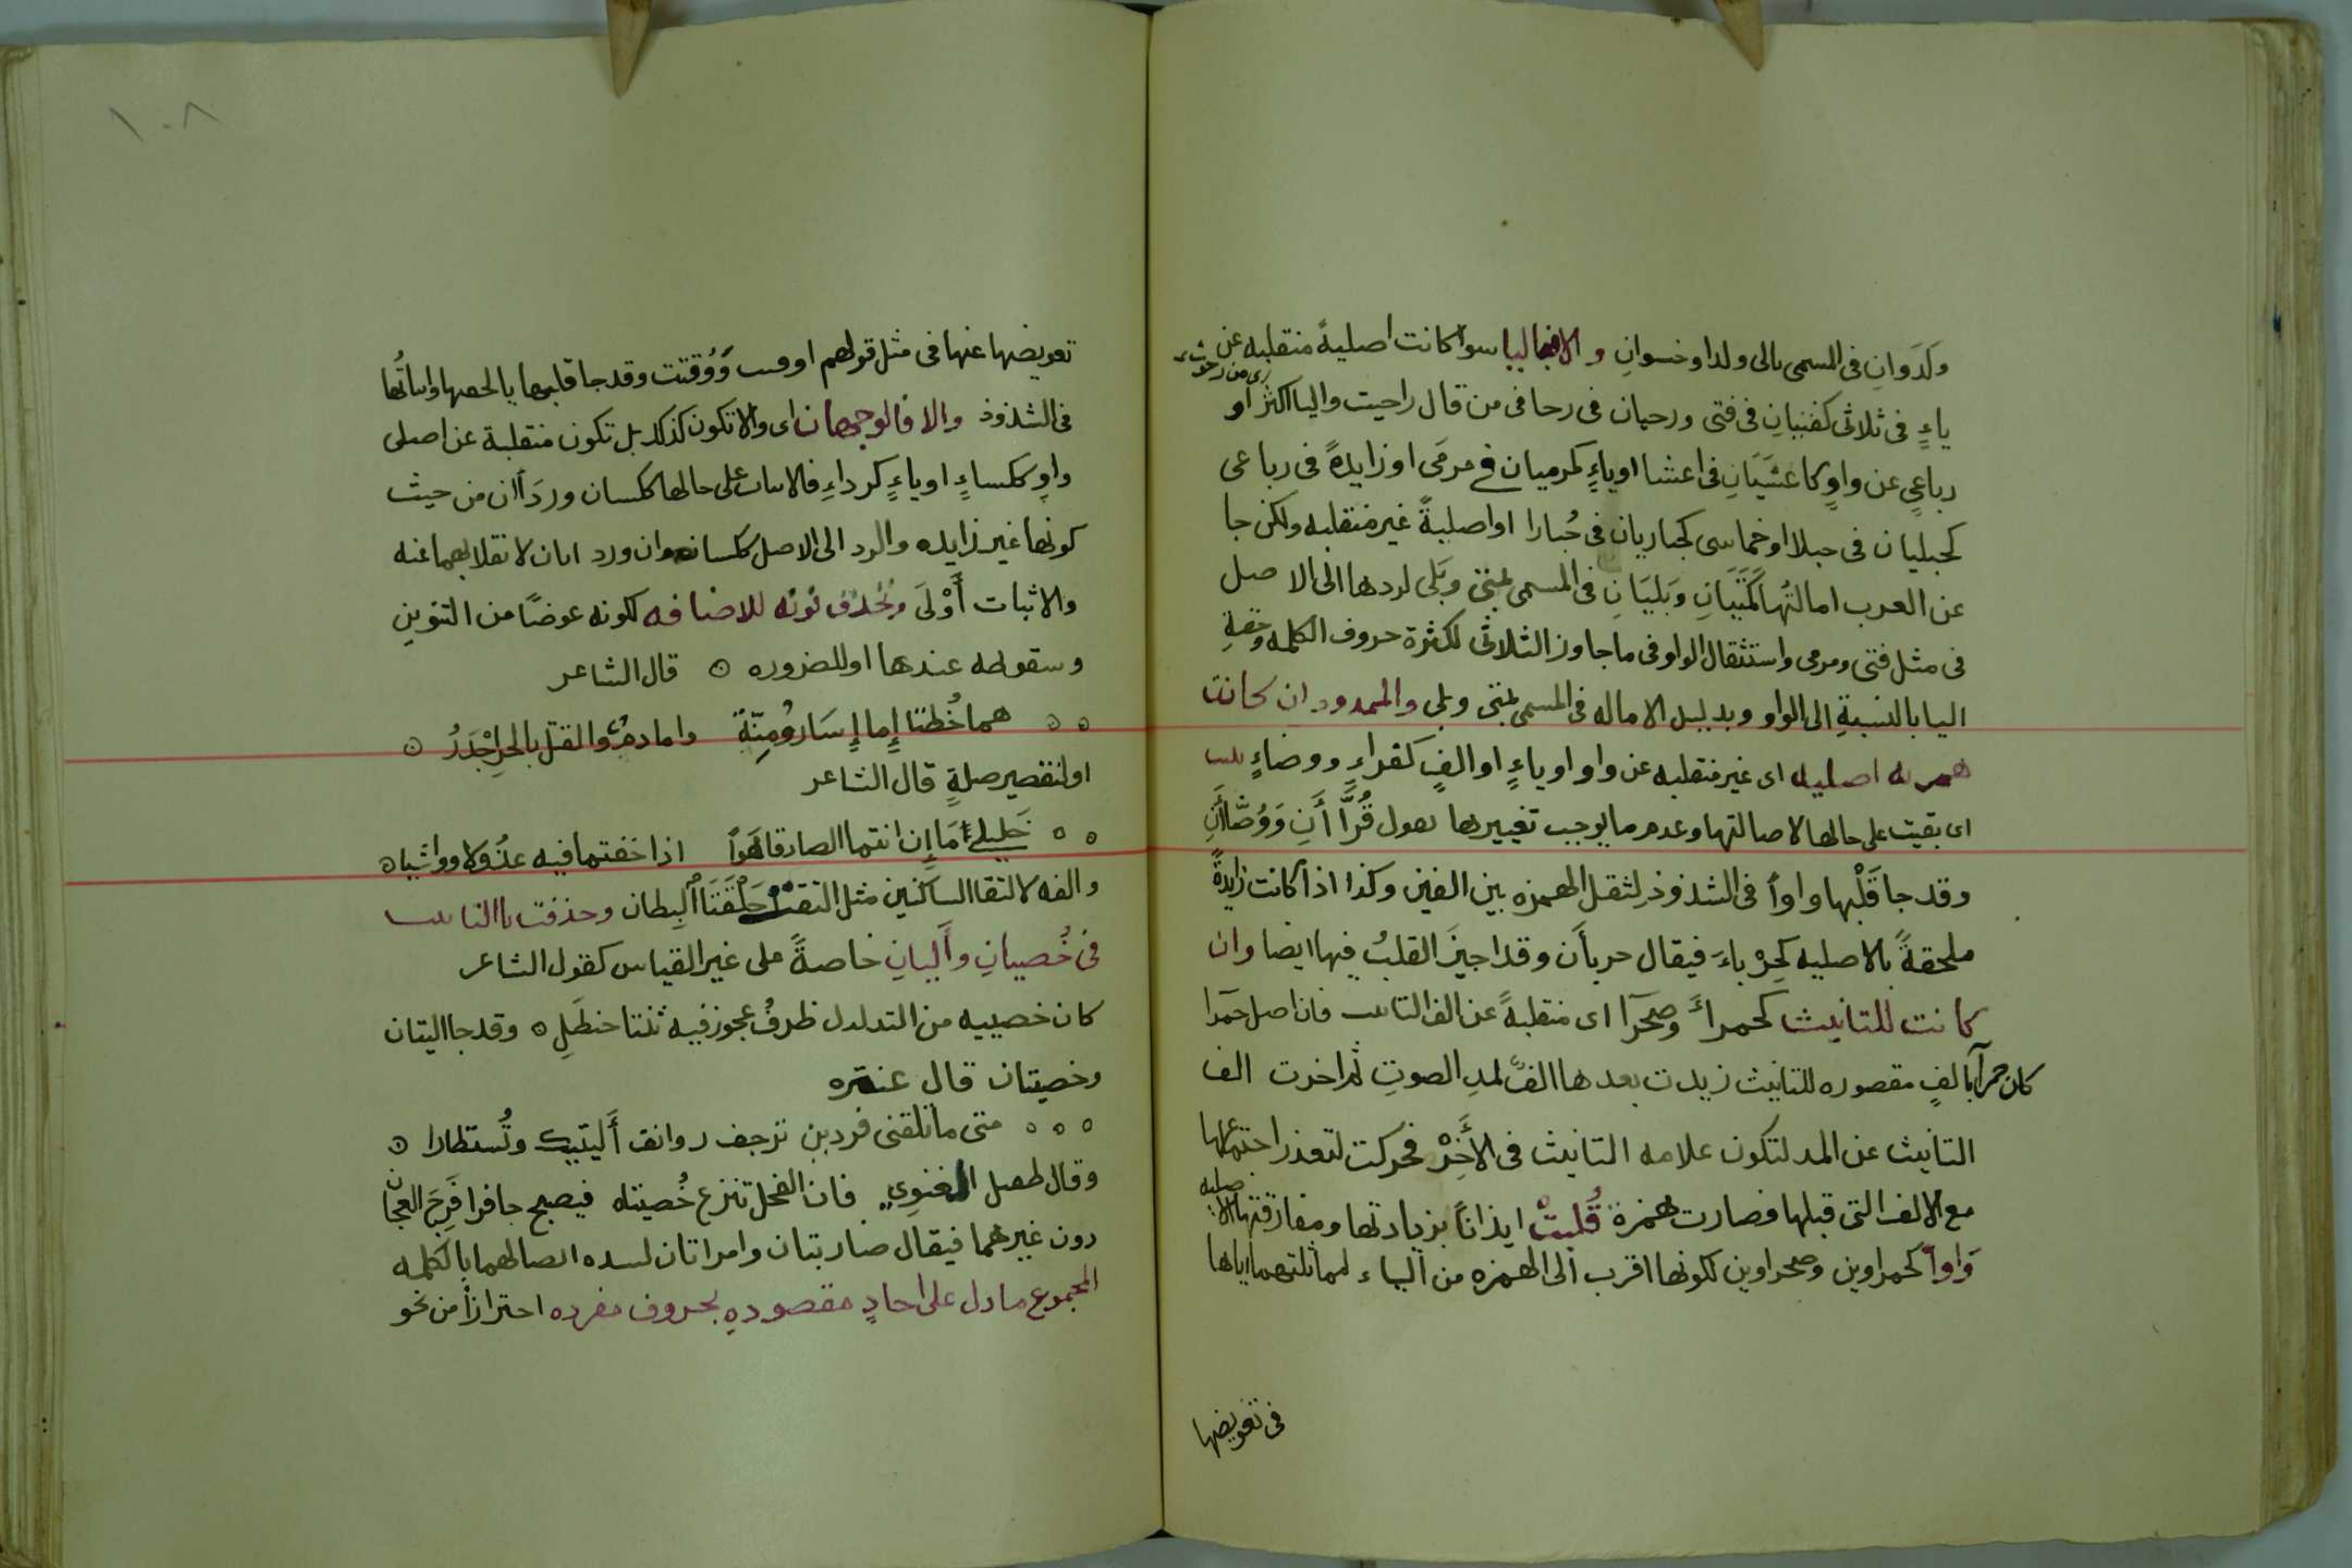 وَلَدَوانِ فى المسمى بالى ولدا وخسوانِ والا فبا ليا سوا كانت اصليةً منقلبه عن
ياءٍ فى ثلاثى كفتيانِ فى فتى ورحيان فى رحا فى من قال راحيت واليا اكثر او
رباعيٍ عن واوٍ كاعشَيَانِ فى اعشا او ياءٍ كمرميان فى مرمَى او زايدةً فى رباعى
كحبليان فى حبلا او خماسى كحباريان فى حُبارا او اصليةً غير منقلبه ولكن جا
عن العرب امالتُها كَمَتَيَانِ وَبَلَيَانِ فى المسمى بمتى وبَلى لردها الى الاصل
فى مثل فتى ومرمى واستثقال الواو فى ما جاوز الثلاثى لكثرة حروف الكلمه وخفةِ
اليا بالنسبةِ الى الواو وبدليل الاماله فى المسمى بمتى وبلى والممدود ان كانت
همزته اصليه اى غير منقلبه عن واو او ياءٍ او الفٍ كقراءٍ ووضاءٍ تثبت
اى بقيت على حالها لاصالتها وعدم ما يوجب تغييرها تقول قُرَّاأَنِ وَوُضَّاأَنِ
وقد جا قَلْبها واواً فى الشذوذ لثقل الهمزه بين الفين وكذا اذا كانت زايدةً
ملحقةً بالاصليه كحِرْباءَ فيقال حرباأن وقد اجيزَ القلبُ فيها ايضا وان
كانت للتانيث كحمراءَ وصَحرَا اى منقلبةً عن الف التانيث فان اصل حَمرَا
كان حمرا بالفٍ مقصوره للتانيث زيدت بعدها الفٌ لمدِ الصوتِ ثم اخرت الف
التانيث عن المد لتكون علامه التانيث فى الأَخِرْ فحركت لتعذر اجتماعها
مع الالف التى قبلها فصارت همزة قُلبتْ ايذاناً بزيادتها ومفارقتها الاصليه
وَاواً كحمراوين وصحراوين لكونها اقرب الى الهمزه من الياء لمماثلتهما اياها
فى تعويضها
تعويضها عنها فى مثل قولهم اوقتت وَوُقتت وقد جا قلبها يا لخفتها واثباتُها
فى الشذوذ والا فالوجهان اى والا تكون كذلك بل تكون منقلبة عن اصلى
واوٍ ككساءٍ او ياءٍ كرداءٍ فالاثبات على حالها ككسان وردَاأن من حيث
كونها غير زايده والرد الى الاصل ككسانه وان ورد ايان لانقلابهما عنه
والاثبات أَوْلَى وتُحذف نونه للاضافه لكونه عوضًا من التنوين
وسقوطه عندها او للضروره ۞ قال الشاعر
هما خُطتا إِما إِسَارٌ وُمِنّةٌ واما دمٌ والقتل بالحرِ اجْدَرُ
او لتقصير صلةٍ قال الشاعر
خَليليَّ اَمَا إِن انتما الصادقا هَواً اذا خفتما فيه عذُولا وواشيا
والفه لالتقا الساكنين مثل التقتْ حَلْقَتَا اْلبِطان وحذفت تا التانيث
فى خُصيانِ وأَليانِ خاصةً على غير القياس كقول الشاعر
كان خصييه من التدلدل ظرفُ عجوز فيه ثنتا حنظَلِ ۞ وقد جا اليتان
وخصيتان قال عنتره
متى ما تلقنى فردين ترجف روانف أَليتيك وتُستطارا
وقال طفيل الغنوِي فان الفحل تنزع خُصيتاه فيصبح جافرا قَرِحَ العجان
دون غيرهما فيقال ضاربتان وامراتان لشده اتصالهما بالكلمه
المجموع ما دل على احادٍ مقصودهِ بحروف مفرده احترازاً من نحو
١٠٨